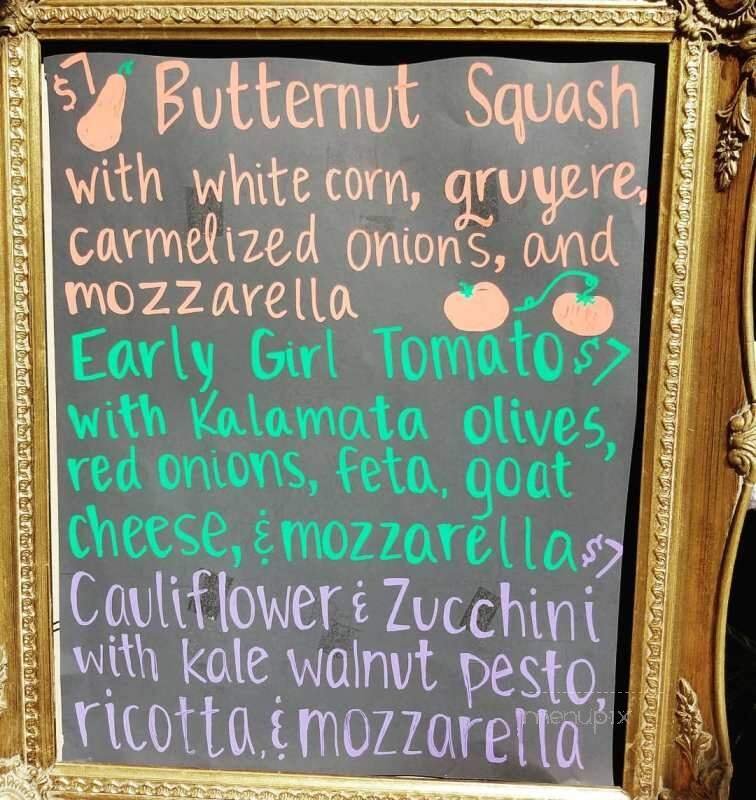 $7 Butternut Squash
with white corn, gruyere,
carmelized onions, and
mozzarella
Early Girl Tomato $7
with Kalamata olives,
red onions, feta, goat
cheese, & mozzarella $7
Cauliflower & Zucchini
with kale walnut pesto,
ricotta, & mozzarella
menupix